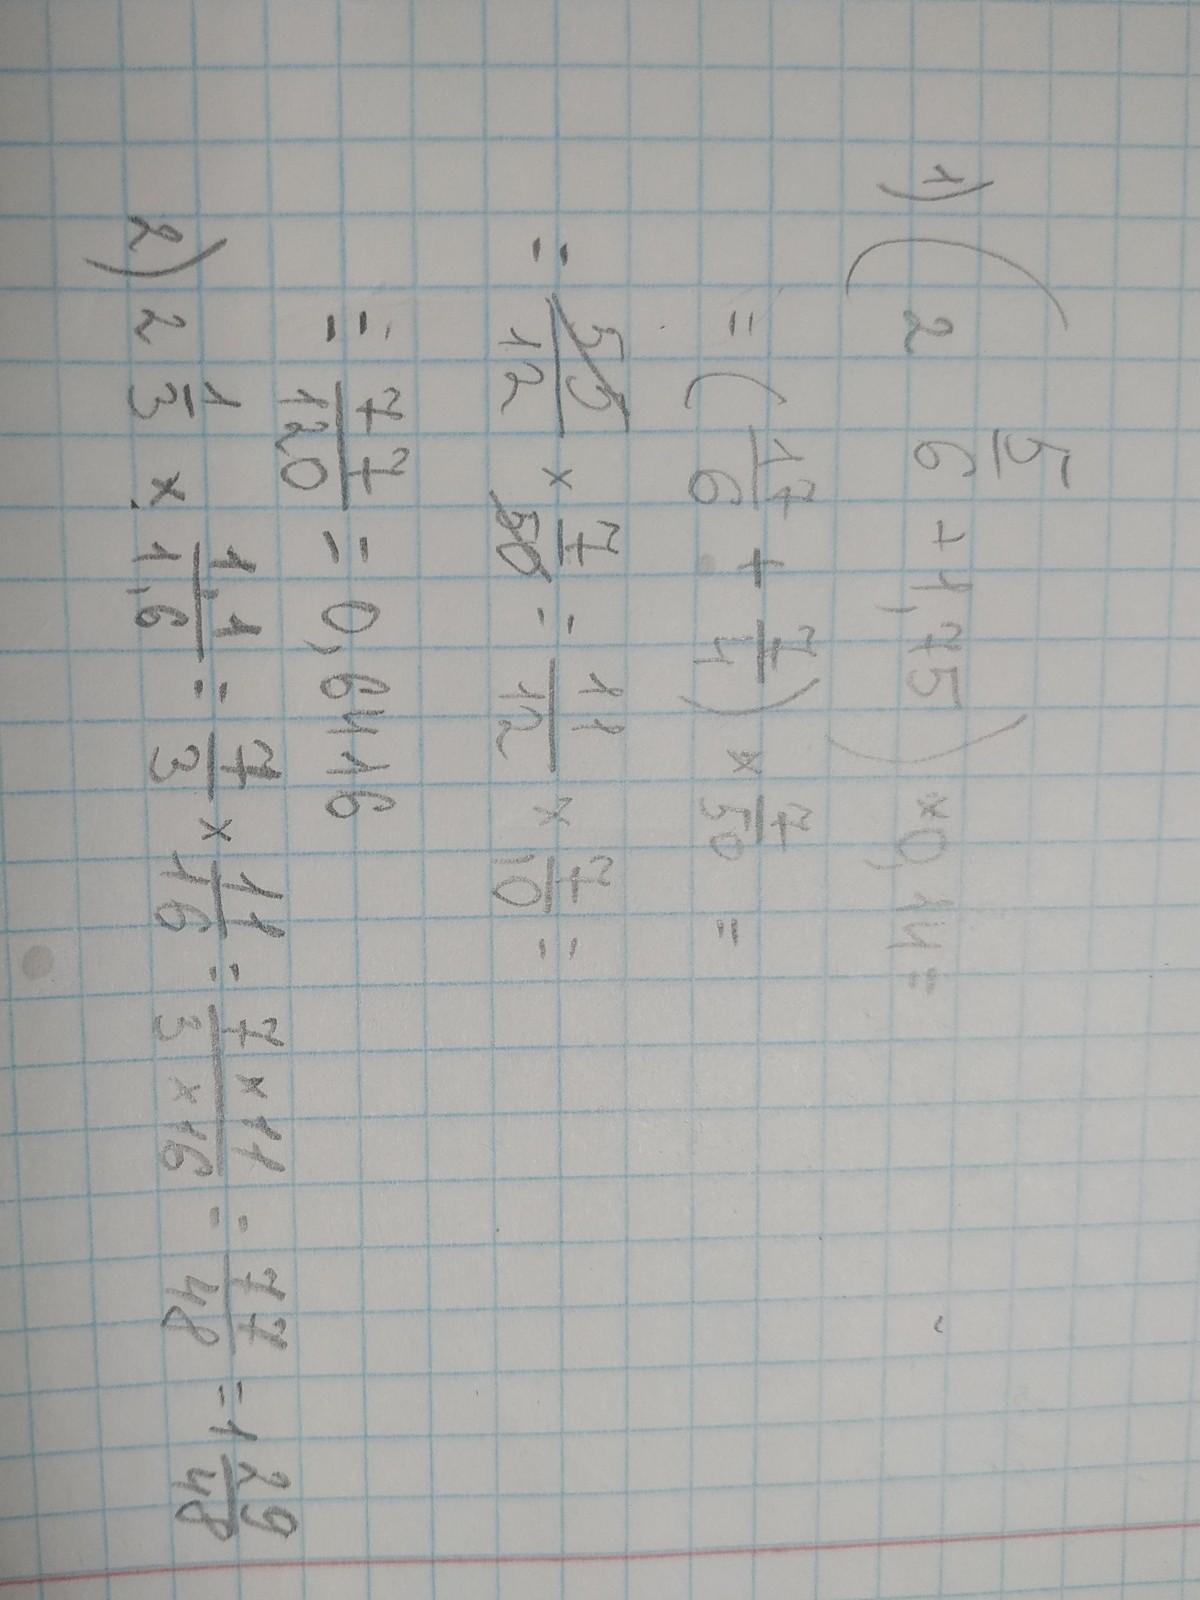 1) (2 5/6 + 1,75) × 0,14 =
= (17/6 + 7/4) × 7/50 =
= 55/12 × 7/50 = 11/12 × 7/10 =
= 77/120 = 0,6416
2) 2 1/3 × 1,1/1,6 = 7/3 × 11/16 = 7×11/3×16 = 77/48 = 1 29/48